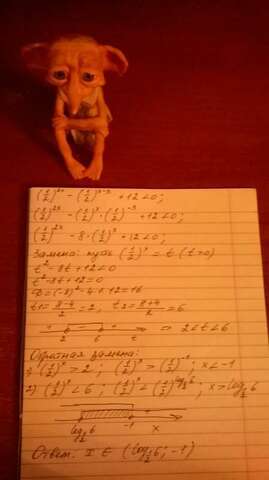 (1/2)^2x - (1/2)^x-3 + 12 < 0;
(1/2)^2x - (1/2)^x · (1/2)^-3 + 12 < 0;
(1/2)^2x - 8 · (1/2)^x + 12 < 0;
Замена: пусть (1/2)^x = t (t>0)
t² - 8t + 12 < 0
t² - 8t + 12 = 0
D = (-8)² - 4·1·12 = 16
t1 = (8-4)/2 = 2, t2 = (8+4)/2 = 6
+ - + 2 6 t ⇒ 2<t<6
Обратная замена:
1) (1/2)^x > 2; (1/2)^x > (1/2)^-1; x < -1
2) (1/2)^x < 6; (1/2)^x < (1/2)^log_1/2 6; x > log_1/2 6
log_1/2 6 -1 x
Ответ: x ∈ (log_1/2 6; -1)